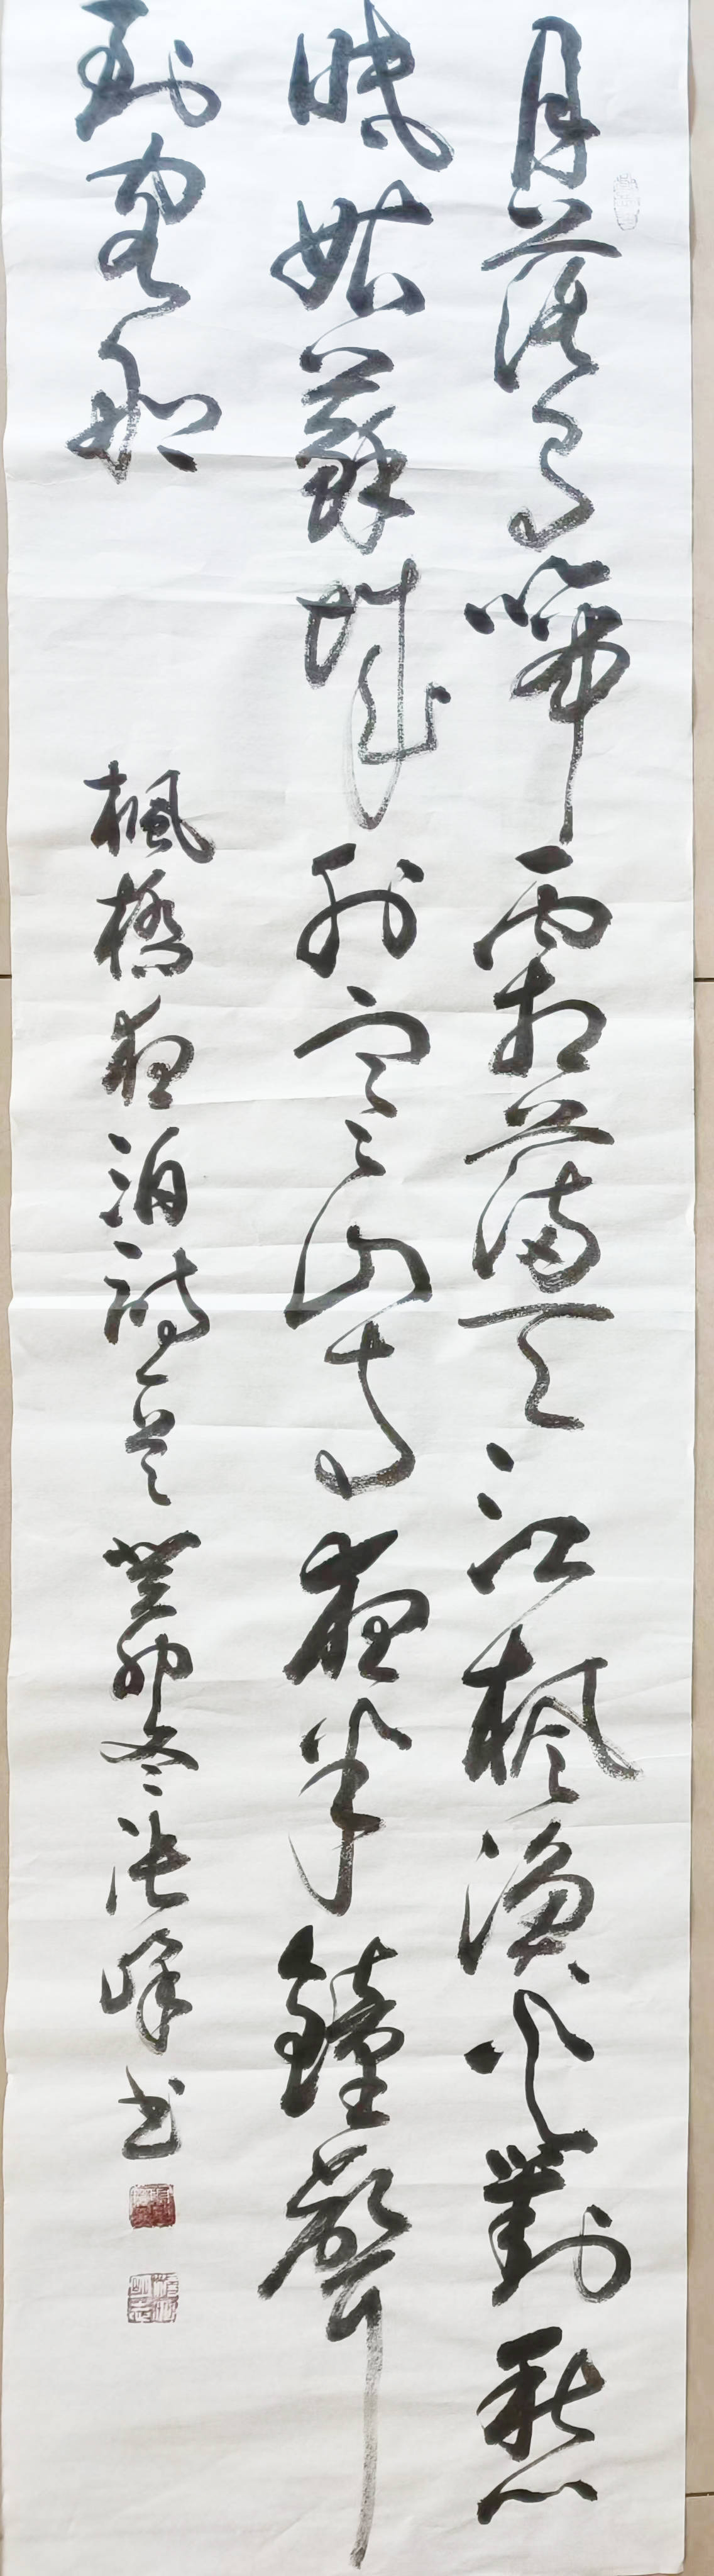 月落烏啼霜滿天江楓漁火對愁
眠姑蘇城外寒山寺夜半鐘聲
到客船
楓橋夜泊詩一首癸卯冬張峰书